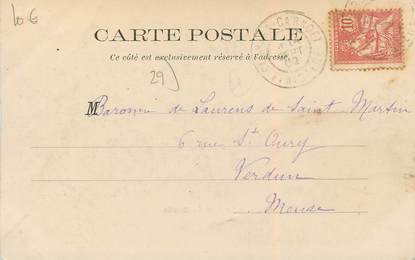 10 €
CARTE POSTALE
Ce côté est exclusivement réservé à l'adresse.
29
10
M Baronne de Laurens de Saint Martin
6 rue St Oury
Verdun
Meuse